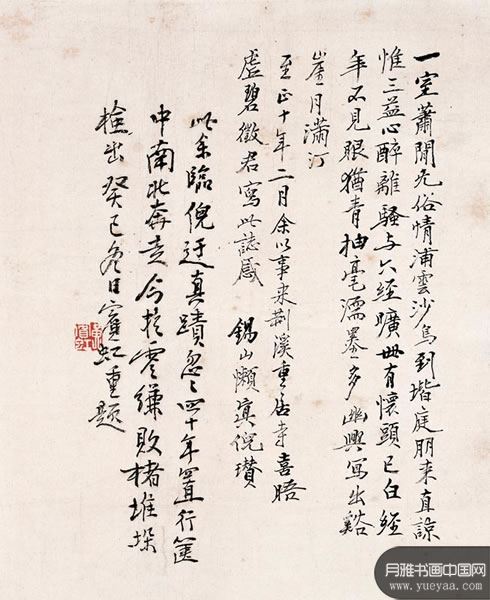 一室蕭閒无俗情浦雲沙鳥到堦庭朋来直諒
惟三益心醉離騷与六經曠世有懷頭已白經
年不見眼猶青抽毫濡墨多幽興寫出谿
崖月滿汀
至正十年二月余以事来荆溪重居寺喜晤
虛碧徵君寫此誌感 錫山懶真倪瓚
此余臨倪迂真蹟忽〻四十年置行篋
中南北奔走今於零縑敗楮堆垜
檢出癸巳冬日賓虹重題
月雅书画中国网
www.yueyaa.com